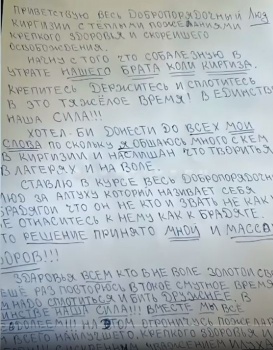 ПРИВЕТСТВУЮ ВЕСЬ ДОБРОПОРЯДОЧНЫЙ ЛЮД
КИРГИЗИИ С ТЕПЛЫМИ ПОЖЕЛАНИЯМИ
КРЕПКОГО ЗДОРОВЬЯ И СКОРЕЙШЕГО
ОСВОБОЖДЕНИЯ.
НАЧНУ С ТОГО ЧТО СОБАЛЕЗНУЮ В
УТРАТЕ НАШЕГО БРАТА КОЛИ КИРГИЗА.
КРЕПИТЕСЬ ДЕРЖИТЕСЬ И СПЛОТИТЕСЬ
В ЭТО ТЯЖЁЛОЕ ВРЕМЯ! В ЕДИНСТВ
НАША СИЛА!!!
ХОТЕЛ БИ ДОНЕСТИ ДО ВСЕХ МОИ
СЛОВА ПО СКОЛЬКУ Я ОБЩАЮСЬ МНОГО С КЕМ
В КИРГИЗИИ И НАСЛИШАН ЧТО ТВОРИТЬСЯ
В ЛАГЕРЯХ И НА ВОЛЕ.
СТАВЛЮ В КУРСЕ ВЕСЬ ДОБРОПОРЯДОЧН
ЛЮД ЗА АЛТУХУ КОТОРИЙ НАЗИВАЕТ СЕБЯ
БРАДЯГОЙ ЧТО ОН НЕ КТО И ЗВАТЬ НЕ КАК
НЕ ОТНАСИТЕСЬ К НЕМУ КАК К БРАДЯГЕ.
ТО РЕШЕНИЕ ПРИНЯТО МНОЙ И МАССО
ВОРОВ!!!
ЗДАРОВЬЯ ВСЕМ КТО В НЕ ВОЛЕ. ЗОЛОТОЙ СВ
ЕЩЕ РАЗ ПОВТОРЮСЬ В ТАКОЕ СМУТНОЕ ВРЕМЯ
НАДО СПЛОТИТЬСЯ И БИТЬ ДРУЖНЕЕ. В
ИНСТВЕ НАША СИЛА!!! ВМЕСТЕ МЫ ВСЕ
НА ЭТОМ ОГРАНИЧУСЬ ПОЖЕЛА
ВСЕГО НАИЛУЧШЕГО, КРЕПКОГО ЗДОРОВЬЯ, И